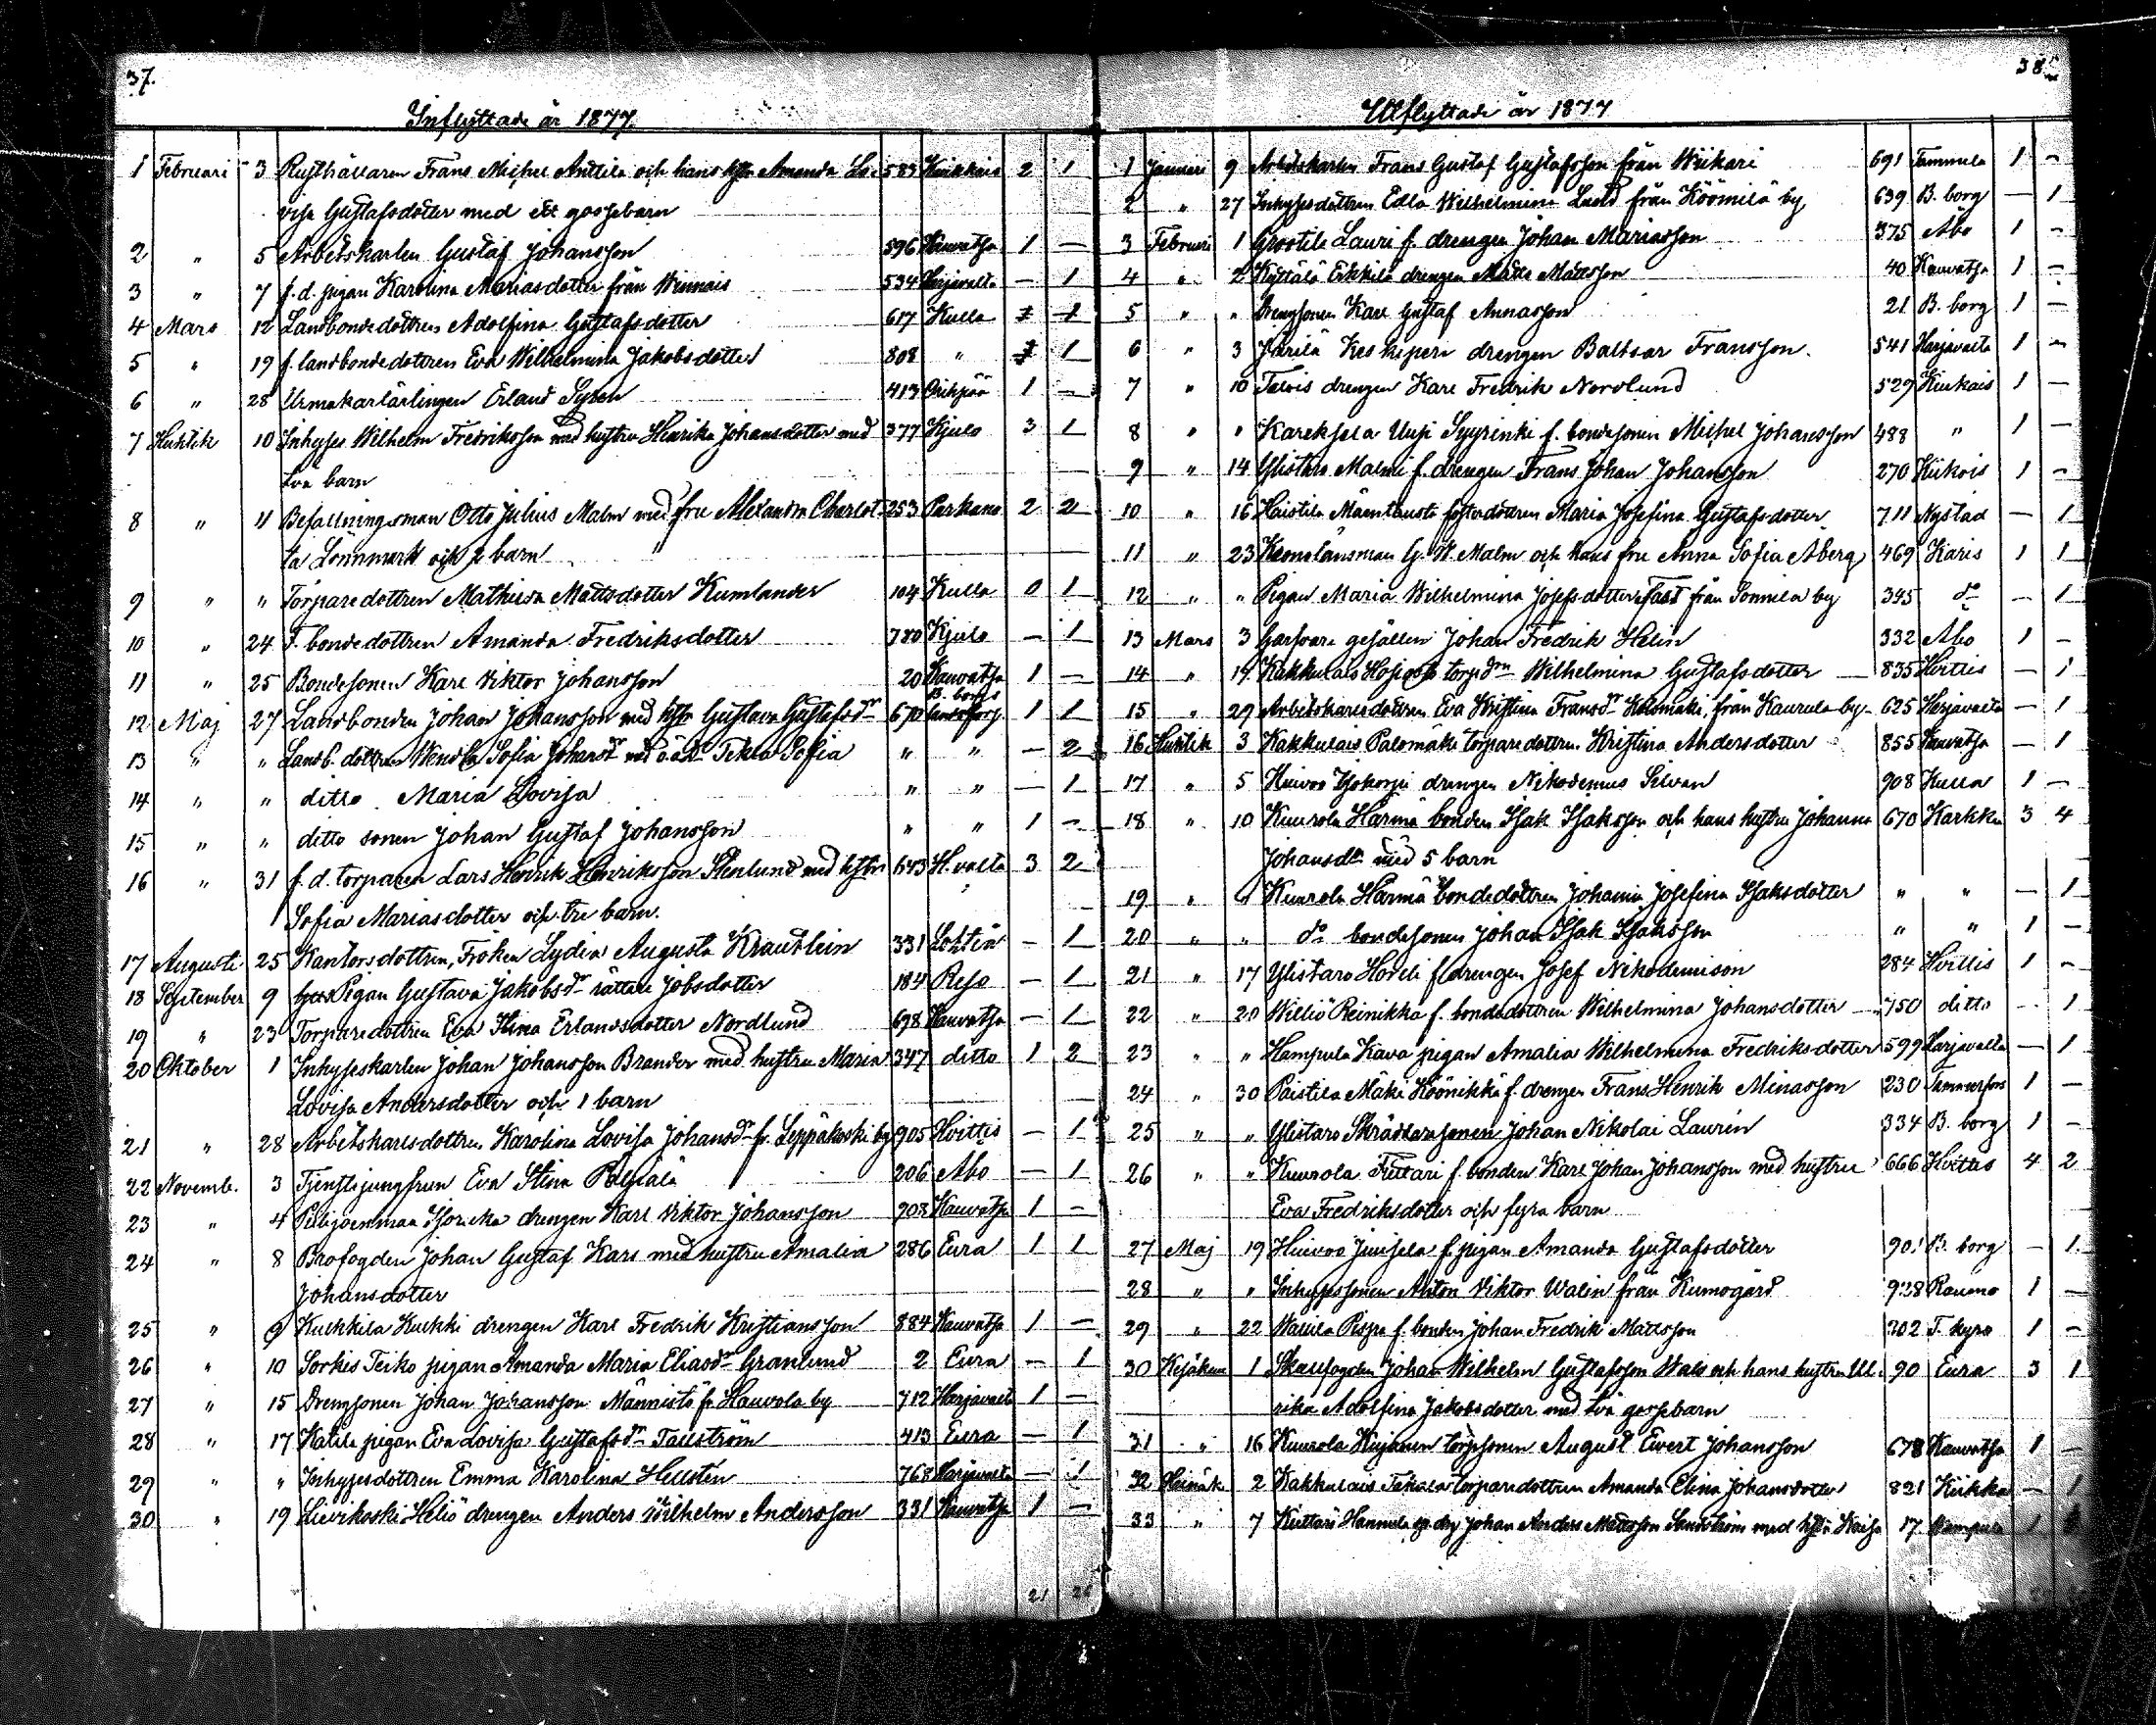 37.
Inflyttade år 1877.
1 Februari 3 Rusthållaren Frans Michel Anttila och hans hstr Amanda Lo- 583 Kiukkais 2 1
visa Gustafsdotter med ett gossebarn
2 " 5 Arbetskarlen Gustaf Johansson 596 Kauvatsa 1 —
3 " 7 f.d. pigan Karolina Mariasdotter från Winnais 534 Harjavalta — 1
4 Mars 12 Landbondedottren Adolfina Gustafsdotter 617 Kulla 1
5 " 19 f. landbondedottren Eva Wilhelmina Jakobsdotter 808 " 1
6 " 28 Urmakarlärlingen Erland Syren 413 Orihpää 1 —
7 Huhtik 10 Inhyses Wilhelm Fredriksson med hustru Henrika Johansdotter med 377 Kjulo 3 1
två barn
8 " 11 Befallningsman Otto Julius Malm med fru Alexandra Charlot- 253 Parkano 2 2
ta Lönnmark och 2 barn
9 " " Torparedottren Mathilda Mattsdotter Kumlander 104 Kulla 0 1
10 " 24 F. bondedottren Amanda Fredriksdotter 780 Kjulo — 1
11 " 25 Bondesonen Karl Viktor Johansson 20 Kauvatsa 1 —
12 Maj 27 Landbonden Johan Johansson med hstr Gustava Gustafsdr 670 B. borgs landsförs. 1 1
13 " " Landb. dottren Wendla Sofia Johansdr med o.ä.dr Tekla Sofia " " — 2
14 " " ditto Maria Lovisa " " — 1
15 " " ditto sonen Johan Gustaf Johansson " " 1 —
16 " 31 f.d. torparen Lars Henrik Henriksson Stenlund med hstr 643 H.valta 3 2
Sofia Mariasdotter och tre barn.
17 Augusti 25 Kantorsdottren, Fröken Lydia Augusta Krautlein 331 Lohtea — 1
18 September 9 Pigan Gustava Jakobsdr rättare Jobsdotter 184 Reso — 1
19 " 23 Torparedottren Eva Stina Erlandsdotter Nordlund 698 Kauvatsa — 1
20 Oktober 1 Inhyseskarlen Johan Johansson Brander med hustru Maria 347 ditto 1 2
Lovisa Andersdotter och 1 barn
21 " 28 Arbetskarlsdottren Karolina Lovisa Johansdr fr. Leppäkoski by 905 Hvittis — 1
22 Novemb. 3 Tjenstejungfrun Eva Stina 206 Åbo — 1
23 " 4 drengen Karl Viktor Johansson 908 Kauvatsa 1 —
24 " 8 Brofogden Johan Gustaf Kars med hustru Amalia 286 Eura 1 1
Johansdotter
25 " 9 Kukkila Kukki drengen Karl Fredrik Kristiansson 884 Kauvatsa 1 —
26 " 10 Sorkis Teiko pigan Amanda Maria Eliasdr Granlund 2 Eura — 1
27 " 15 Drengsonen Johan Johansson Männistö fr Hauvola by 712 Harjavalta 1 —
28 " 17 Katila pigan Eva Lovisa Gustafsdr Tallström 413 Eura — 1
29 " " Inhysesdottren Emma Karolina Hellstén 768 Harjavalta — 1
30 " 19 Lievikoski Heliö drengen Anders Wilhelm Andersson 331 Kauvatsa 1 —
21 26
38.
Utflyttade år 1877
1 Januari 9 Arbetskarlen Frans Gustaf Gustafsson från Wiikari 691 Tammela 1 —
2 " 27 Inhysesdottren Edla Wilhelmina från Köömilä by 639 B. borg — 1
3 Februari 1 Grootila Lauri f. drengen Johan Mariasson 375 Åbo 1 —
4 " 2 Kyttälä Erkkilä drengen Matts Mattsson 40 Kauvatsa 1 —
5 " " Drengsonen Karl Gustaf Annasson 21 B. borg 1 —
6 " 3 Järilä Keskiperi drengen Baltsar Fransson. 541 Harjavalta 1 —
7 " 10 Talvis drengen Karl Fredrik Nordlund 529 Kiukais 1 —
8 " " Kareksela Uusi Syyrinki f. bondesonen Michel Johansson 488 " 1 —
9 " 14 Ylistaro Malmi f. drengen Frans Johan Johansson 270 Kiikois 1 —
10 " 16 Haistila Mäentausta fosterdottren Maria Josefina Gustafsdotter 711 Nystad — 1
11 " 23 Kronolänsman G. W. Malm och hans fru Anna Sofia Åberg 469 Karis 1 1
12 " " Pigan Maria Wilhelmina Josefsdotter Fast från Sonnila by 345 do — 1
13 Mars 3 Garfvare gesällen Johan Fredrik Helin 332 Åbo 1 —
14 " 19 Kakkulais torpdrn Wilhelmina Gustafsdotter 835 Hvittis — 1
15 " 29 Arbetskarlsdottren Eva Kristina Fransdr från Kaurula by 625 Harjavalta — 1
16 Huhtik 3 Kakkulais Palomäki torparedottren Kristina Andersdotter 855 Kauvatsa — 1
17 " 5 Kuivoo Isokorpi drengen Nikodemus Silvan 908 Kulla 1 —
18 " 10 Kuurola Härmä bonden Isak Isaksson och hans hustru Johanna 670 Karkku 3 4
Johansdr med 5 barn
19 " " Kuurola Härmä bondedottren Johanna Josefina Isaksdotter " " — 1
20 " " do bondesonen Johan Isak Isaksson " " 1 —
21 " 17 Ylistaro Hoveli f drengen Josef Nikodemison 284 Hvittis 1 —
22 " 20 Williö Reinikka f. bondedottren Wilhelmina Johansdotter 750 ditto — 1
23 " " Hampula Kava pigan Amalia Wilhelmina Fredriksdotter 599 Harjavalta — 1
24 " 30 Paistila Mäki Köönikkä f. drengen Frans Henrik Minasson 230 Tammerfors 1 —
25 " " Ylistaro Skräddaresonen Johan Nikolai Laurén 334 B. borg 1 —
26 " " Kuurola Kuttari f. bonden Karl Johan Johansson med hustru 666 Hvittis 4 2
Eva Fredriksdotter och fyra barn
27 Maj 19 Kuivoo Juusela f. pigan Amanda Gustafsdotter 901 B. borg — 1
28 " " Inhysessonen Anton Viktor Walin från Kumogård 928 Raumo 1 —
29 " 22 Wallila Pispa f. bonden Johan Fredrik Mattsson 302 T. kyro 1 —
30 Kesäkuu 1 Skallfogden Johan Wilhelm Gustafsson Wals och hans hustru Ul- 90 Eura 3 1
rika Adolfina Jakobsdotter med två gossebarn
31 " 16 Kuurola Kujanen torpsonen August Evert Johansson 678 Kauvatsa 1 —
32 Heinäk. 2 Kakkulais Takala torparedottren Amanda Elina Johansdotter 821 Kiikka — 1
33 " 7 Kuttari Hannula Johan Anders Mattsson Sandström med hstr Kaisa 17 Kampula 1